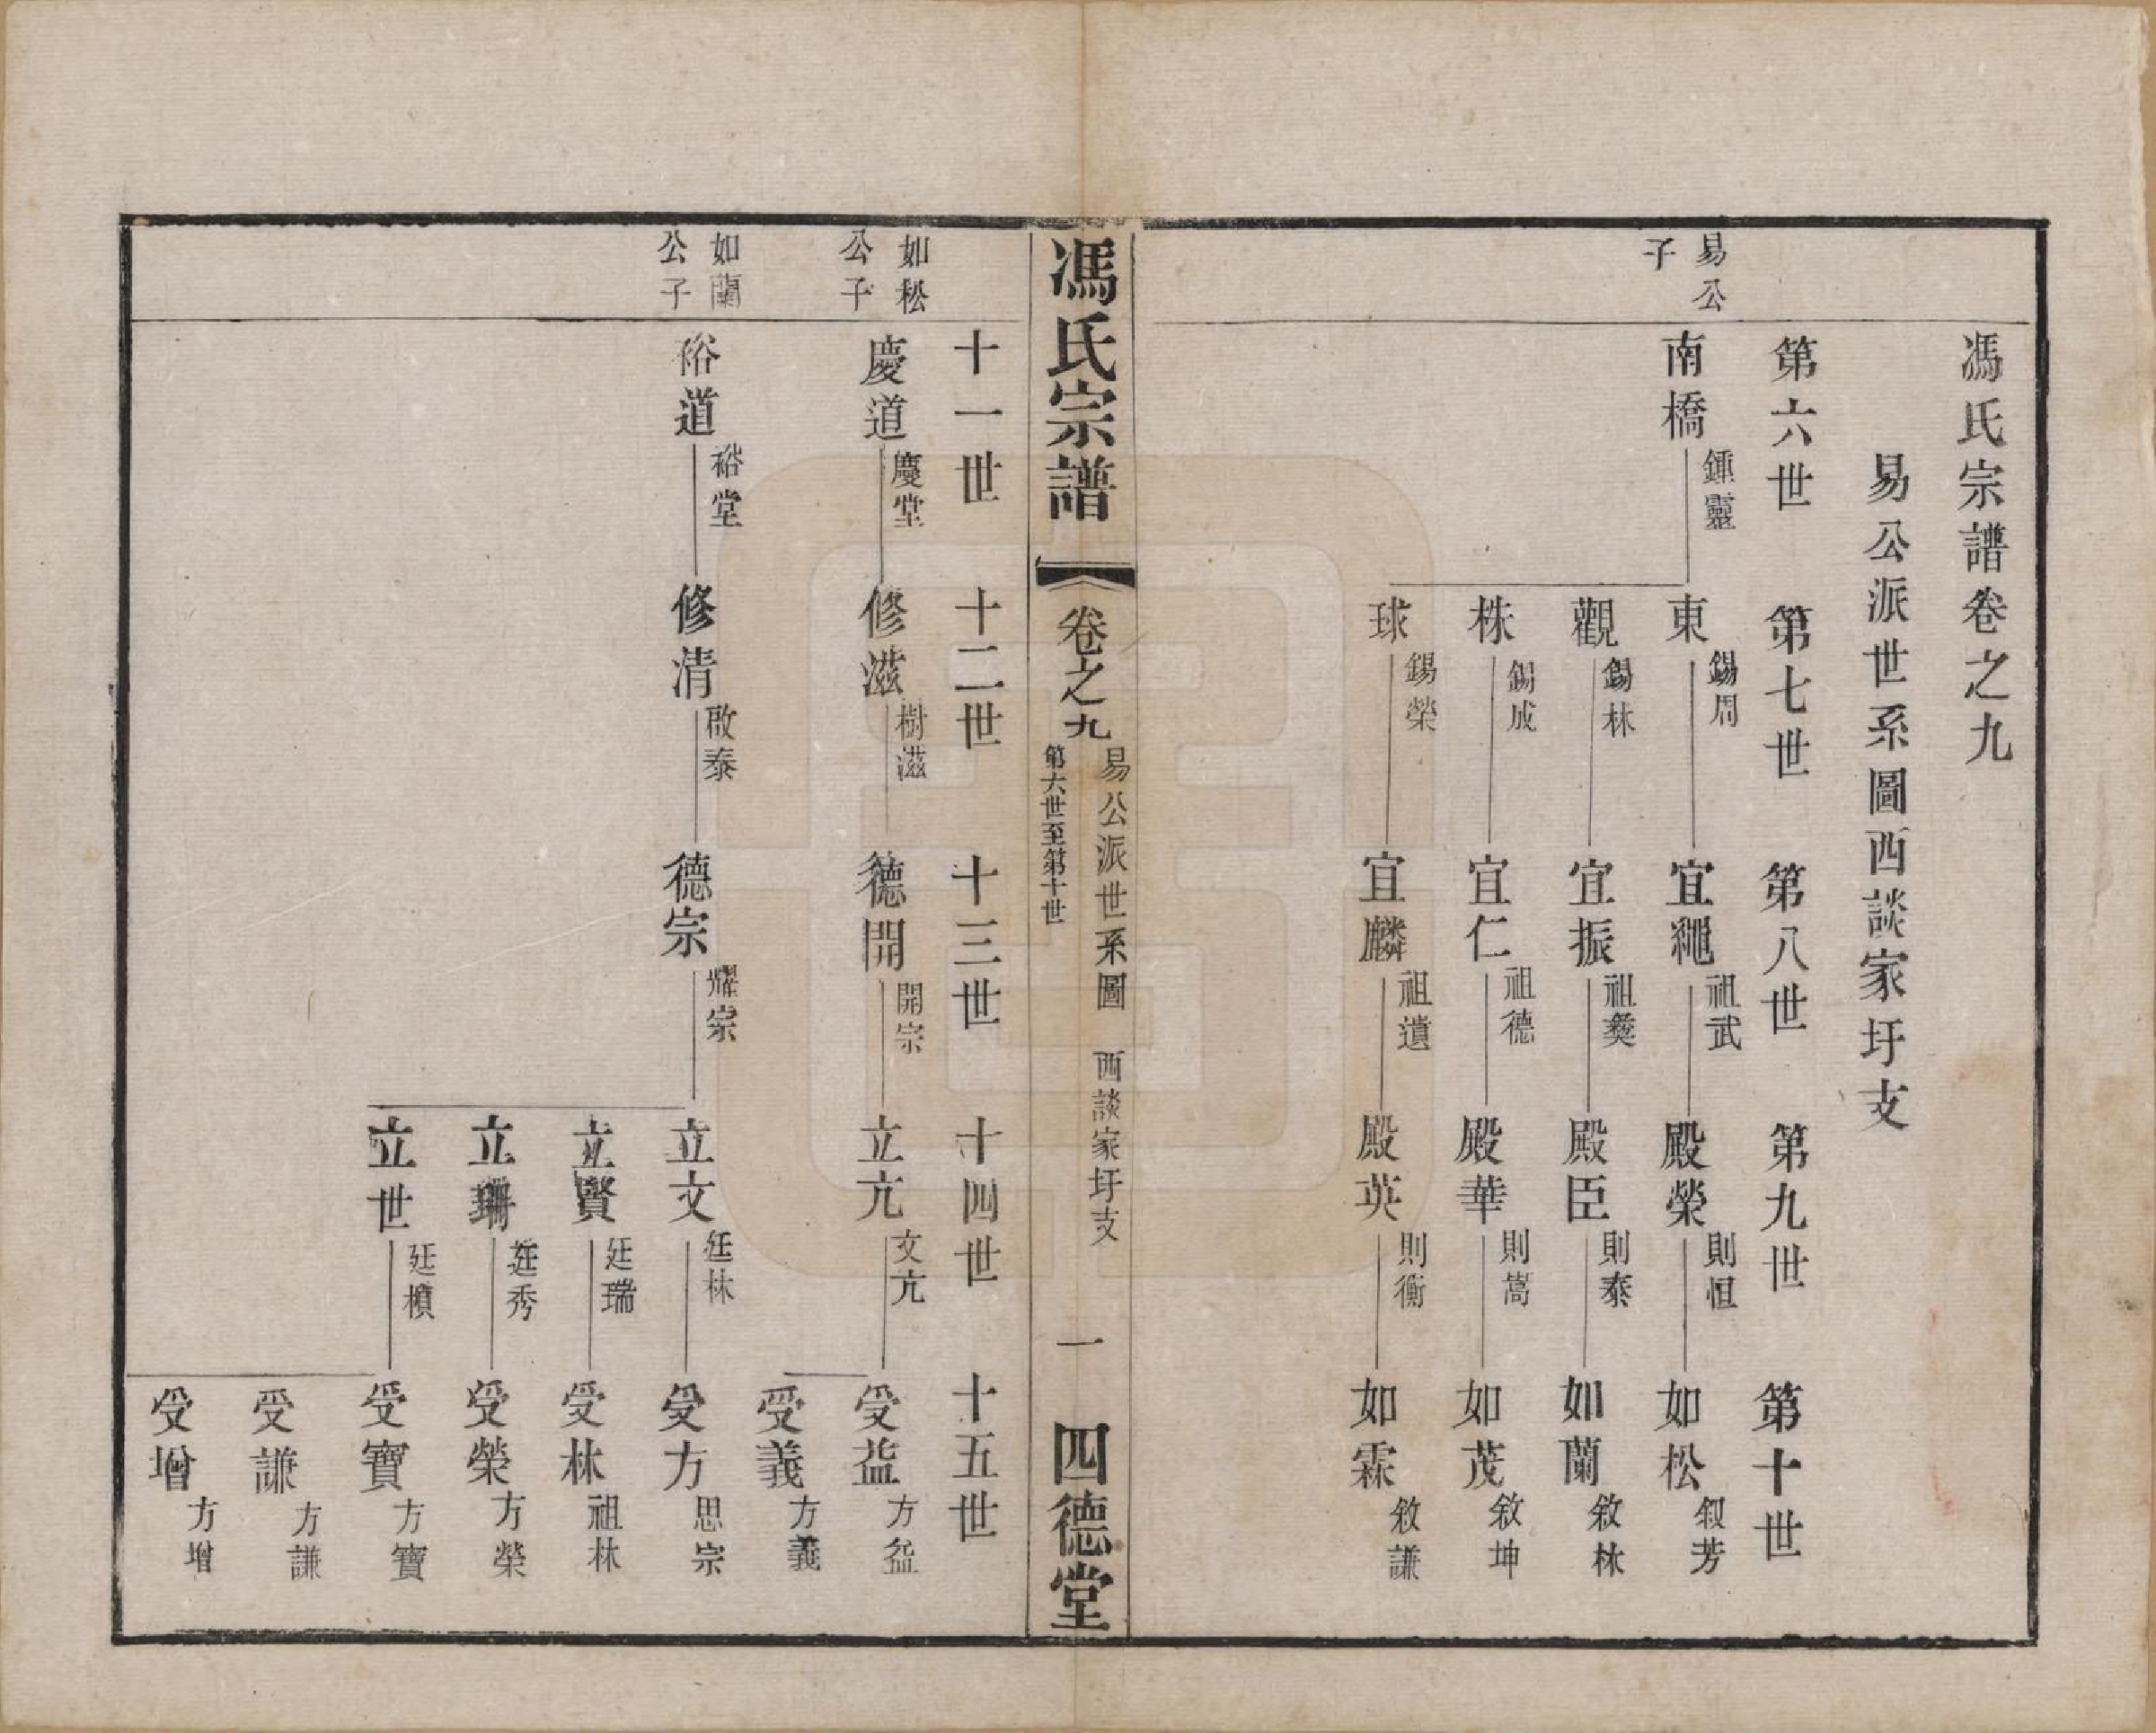 馮氏宗譜卷之九
易公派世系圖西談家圩支
第六世
第七世
第八世
第九世
第十世
易公子
南橋
鍾靈
東
錫周
宜繩
祖武
殿榮
則恒
如松
叙芳
觀
錫林
宜振
祖彝
殿臣
則泰
如蘭
敘林
株
錫成
宜仁
祖德
殿華
則嵩
如茂
敘坤
球
錫榮
宜麟
祖遺
殿英
則衡
如霖
敘謙
馮氏宗譜
卷之九
易公派世系圖 西談家圩支
第六世至第十世
一
四德堂
十一世
十二世
十三世
十四世
十五世
如松公子
慶道
慶堂
修滋
樹滋
德開
開宗
立亢
文亢
受益
方益
受義
方義
如蘭公子
俗道
裕堂
修清
啟泰
德宗
耀宗
立文
廷林
受方
思宗
立賢
廷瑞
受林
祖林
立珊
廷秀
受榮
方榮
立世
廷楨
受寶
方寶
受謙
方謙
受增
方增